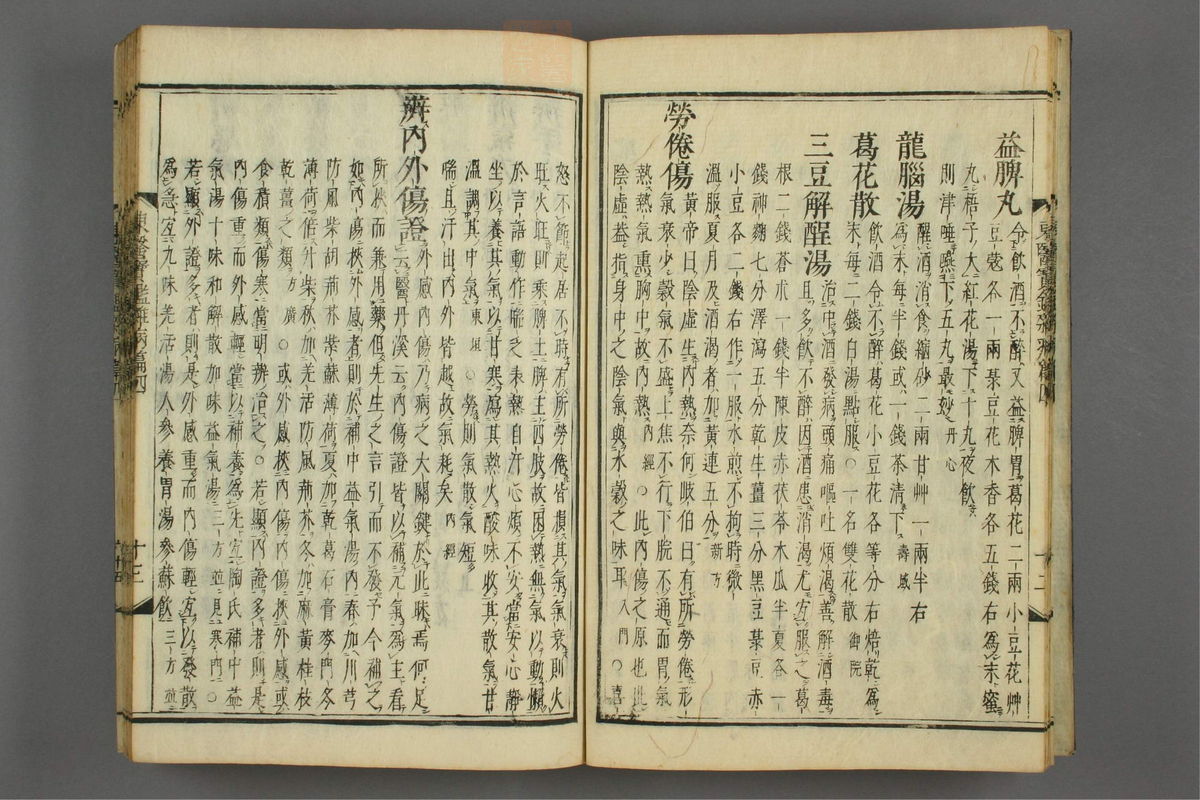 益脾丸 令飲酒不醉又益脾胃葛花二兩小豆花艸
豆蔲各一兩菉豆花木香各五錢右爲末蜜
丸梧子大紅花湯下十丸夜飮
則津唾嚥下五丸最妙丹心
龍腦湯 醒酒消食縮砂二兩甘艸一兩半右
爲末每半錢或一錢茶清下壽域
葛花散 飲酒令不醉葛花小豆花各等分右焙乾爲
末每二錢白湯點服○一名雙花散御院
三豆解酲湯 治中酒發病頭痛嘔吐煩渴善解酒毒
且多飮不醉因酒患消渴尤宜服之葛
根二錢蒼朮一錢半陳皮赤茯苓木瓜半夏各一
錢神麴七分澤瀉五分乾生薑三分黑豆菉豆赤
小豆各二錢右作一服水煎不拘時微
溫服夏月及酒渴者加黃連五分新方
勞倦傷 黃帝曰陰虛生內熱奈何岐伯曰有所勞倦形
氣衰少穀氣不盛上焦不行下脘不通而胃氣
熱熱氣熏胸中故內熱內經○此內傷之原也此
陰虛盖指身中之陰氣與水穀之味耳入門○喜
怒不節起居不時有所勞倦皆損其氣氣衰則火
旺火旺則乘脾土脾主四肢故困熱無氣以動懶
於言語動作喘乏表熱自汗心煩不安當安心靜
坐以養其氣以甘寒瀉其熱火酸味收其散氣甘
溫調其中氣東垣○勞則散氣短
喘且汗出內外皆越故氣耗矣內經
辨內外傷證 外感內傷乃病之大關鍵於此昧焉何足
云醫丹溪云內傷證皆以補元氣爲主看
所挾而兼用藥但先生之言引而不發予今補之
如內傷挾外感者則於補中益氣湯內春加川芎
防風柴胡荊芥紫蘇薄荷夏加乾葛石膏麥門冬
薄荷倍升柴秋加羌活防風荊芥冬加麻黃桂枝
乾薑之類方廣○或外感挾內傷內傷挾外感或
食積類傷寒當明辨治之○若顯內證多者則是
內傷重而外感輕當以補養爲先宜陶氏補中益
氣湯十味和解散加味益氣湯三方並見寒門○
若顯外證多者則是外感重而內傷輕宜以發散
爲急宜九味羌活湯人參養胃湯參蘇飮三方並